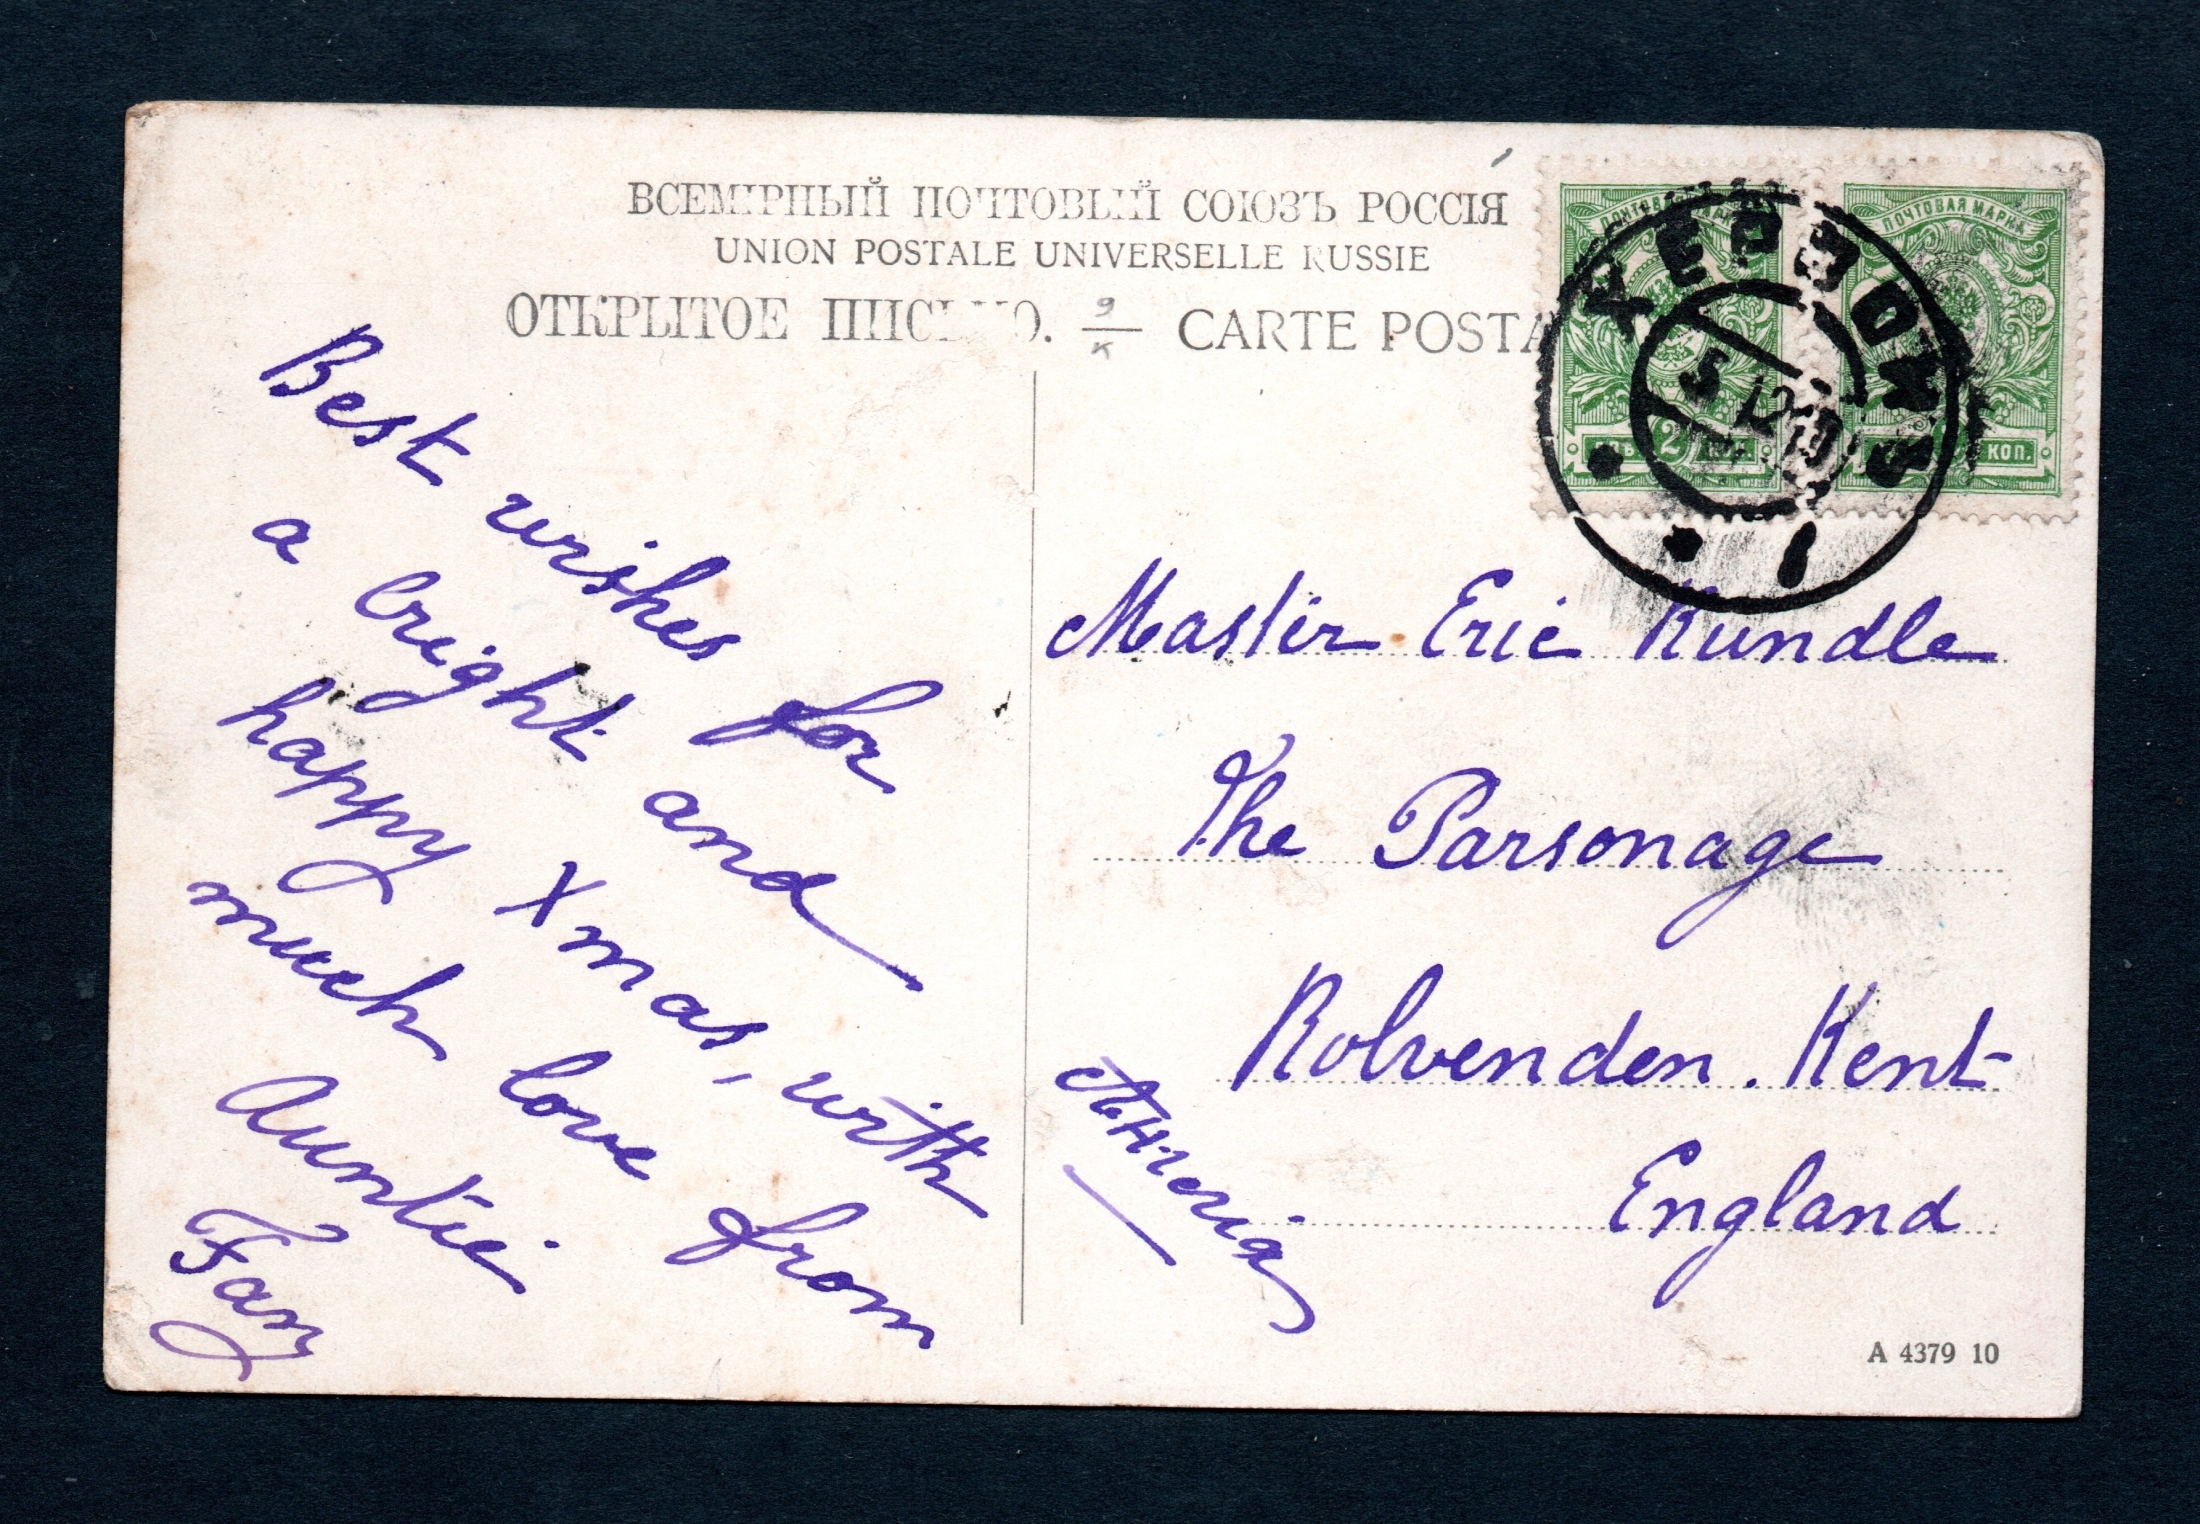 ВСЕМІРНЫЙ ПОЧТОВЫЙ СОЮЗЪ РОССІЯ
UNION POSTALE UNIVERSELLE RUSSIE
ОТКРЫТОЕ ПИСЬМО. CARTE POSTA
ПОЧТОВАЯ МАРКА
ПОЧТОВАЯ МАРКА
2
КОП.
5 12
1
Best wishes for
a bright and
happy Xmas, with
much love from
Auntie
Fan
Master Eric Rundle
The Parsonage
Rolvenden. Kent
England
Англія
A 4379 10